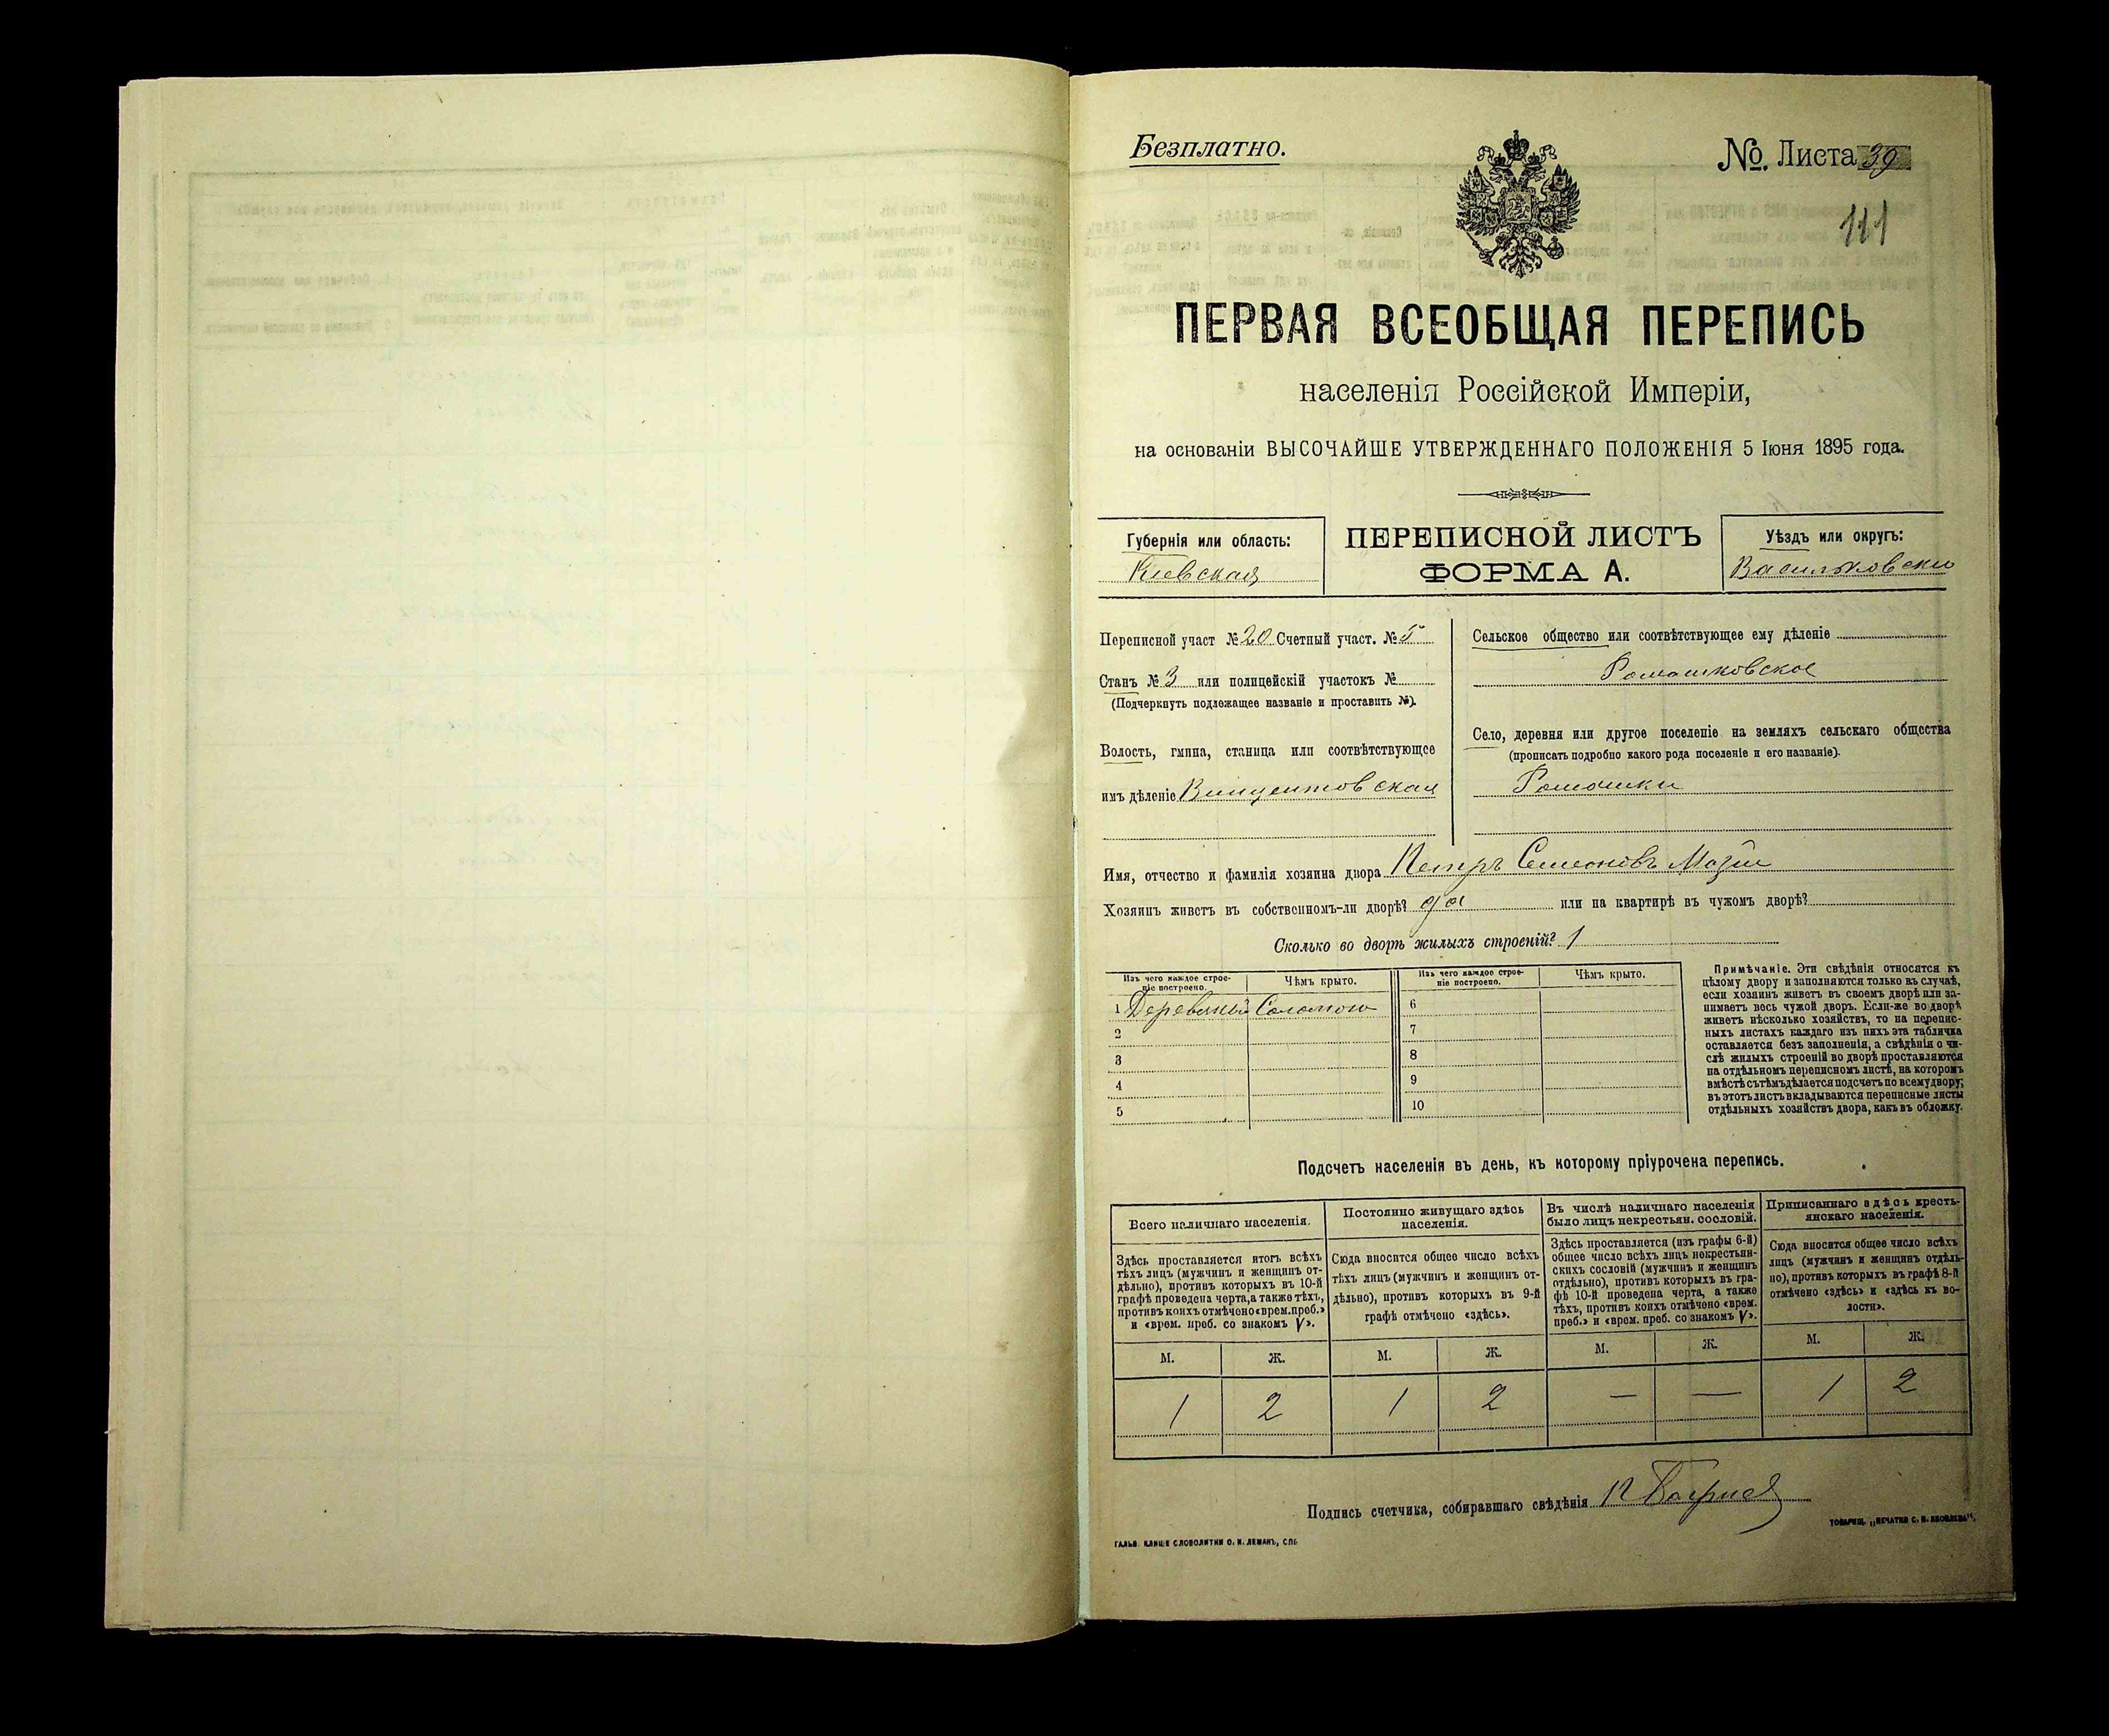 Безплатно.
№. Листа 39
111
ПЕРВАЯ ВСЕОБЩАЯ ПЕРЕПИСЬ
населенія Россійской Имперіи,
на основаніи ВЫСОЧАЙШЕ УТВЕРЖДЕННАГО ПОЛОЖЕНІЯ 5 Іюня 1895 года.
Губернія или область:
Киевская
ПЕРЕПИСНОЙ ЛИСТЪ
ФОРМА А.
Уѣздъ или округъ:
Васильковски
Переписной участ № 20 Счетный участ. № 5
Станъ № 3 или полицейскій участокъ №
(Подчеркнуть подлежащее названіе и проставить №).
Волость, гмина, станица или соотвѣтствующее
имъ дѣленіе Винцентовская
Сельское общество или соотвѣтствующее ему дѣленіе
Ромашковское
Село, деревня или другое поселеніе на земляхъ сельскаго общества
(прописать подробно какого рода поселеніе и его названіе).
Ромашки
Имя, отчество и фамилія хозяина двора Петръ Семеновъ
Хозяинъ живетъ въ собственномъ-ли дворѣ? да или на квартирѣ въ чужомъ дворѣ?
Сколько во дворѣ жилыхъ строеній? 1
Изъ чего каждое строе-
ніе построено.
Чѣмъ крыто.
1 Деревяный Соломою
2
3
4
5
Изъ чего каждое строе-
ніе построено.
Чѣмъ крыто.
6
7
8
9
10
Примѣчаніе. Эти свѣдѣнія относятся къ
цѣлому двору и заполняются только въ случаѣ,
если хозяинъ живетъ въ своемъ дворѣ или за-
нимаетъ весь чужой дворъ. Если-же во дворѣ
живетъ нѣсколько хозяйствъ, то на перепис-
ныхъ листахъ каждаго изъ нихъ эта табличка
оставляется безъ заполненія, а свѣдѣнія о чи-
слѣ жилыхъ строеній во дворѣ проставляются
на отдѣльномъ переписномъ листѣ, на которомъ
вмѣстѣ съ тѣмъ дѣлается подсчетъ по всему двору;
въ этотъ листъ вкладываются переписные листы
отдѣльныхъ хозяйствъ двора, какъ въ обложку.
Подсчетъ населенія въ день, къ которому пріурочена перепись.
Всего наличнаго населенія.
Здѣсь проставляется итогъ всѣхъ
тѣхъ лицъ (мужчинъ и женщинъ от-
дѣльно), противъ которыхъ въ 10-й
графѣ проведена черта, а также тѣхъ,
противъ коихъ отмѣчено «врем. преб.»
и «врем. преб. со знакомъ V».
Постоянно живущаго здѣсь
населенія.
Сюда вносится общее число всѣхъ
тѣхъ лицъ (мужчинъ и женщинъ от-
дѣльно), противъ которыхъ въ 9-й
графѣ отмѣчено «здѣсь».
Въ числѣ наличнаго населенія
было лицъ некрестьян. сословій.
Здѣсь проставляется (изъ графы 6-й)
общее число всѣхъ лицъ некрестьян-
скихъ сословій (мужчинъ и женщинъ
отдѣльно), противъ которыхъ въ гра-
фѣ 10-й проведена черта, а также
тѣхъ, противъ коихъ отмѣчено «врем.
преб.» и «врем. преб. со знакомъ V».
Приписаннаго здѣсь кресть-
янскаго населенія.
Сюда вносится общее число всѣхъ
лицъ (мужчинъ и женщинъ отдѣль-
но), противъ которыхъ въ графѣ 8-й
отмѣчено «здѣсь» и «здѣсь къ во-
лости».
М. Ж. М. Ж. М. Ж. М. Ж.
1 2 1 2 — — 1 2
Подпись счетчика, собиравшаго свѣдѣнія
ГАЛЬВ. КЛИШЕ СЛОВОЛИТНИ О. И. ЛЕМАНЪ, СПБ
ТОВАРИЩ. „ПЕЧАТНЯ С. П. ЯКОВЛЕВА“.